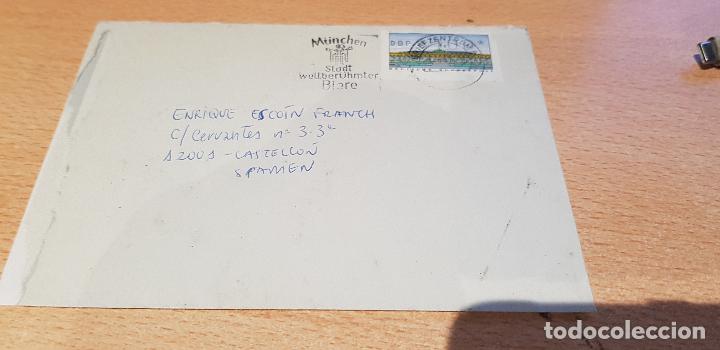 München
Stadt
weltberühmter
Biere
DBP
ENRIQUE ESCOÍN FRANCH
C/ Cervantes nº 3-3º
12001 - CASTELLÓN
SPANIEN
todocoleccion